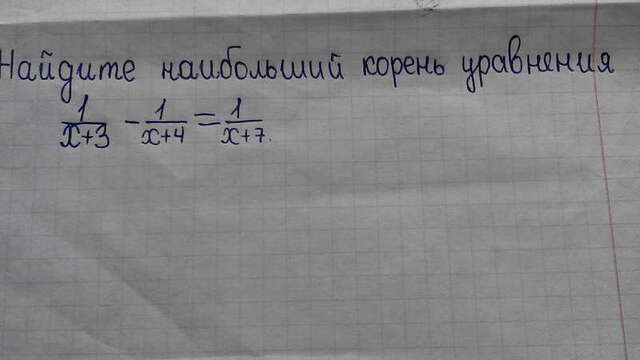 Найдите наибольший корень уравнения
1/(x+3) - 1/(x+4) = 1/(x+7).